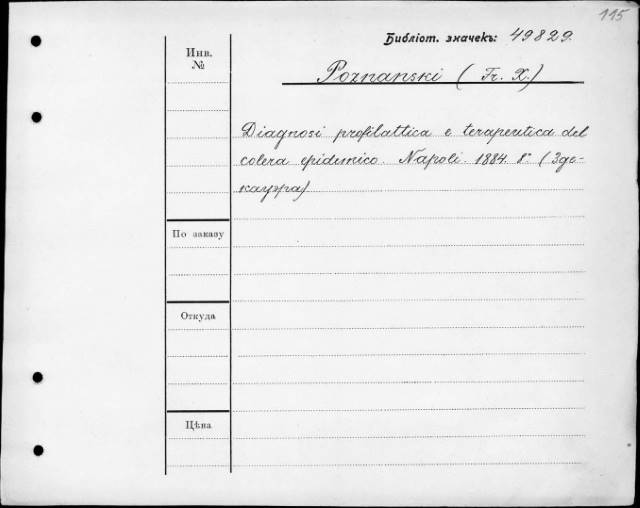 115
Библіот. значекъ: 49829.
Инв.
№
Poznanski (Fr. X.)
Diagnosi profilattica e terapeutica del
colera epidemico. Napoli. 1884. 8°. (Зде-
кауэра)
По заказу
Откуда
Цѣна